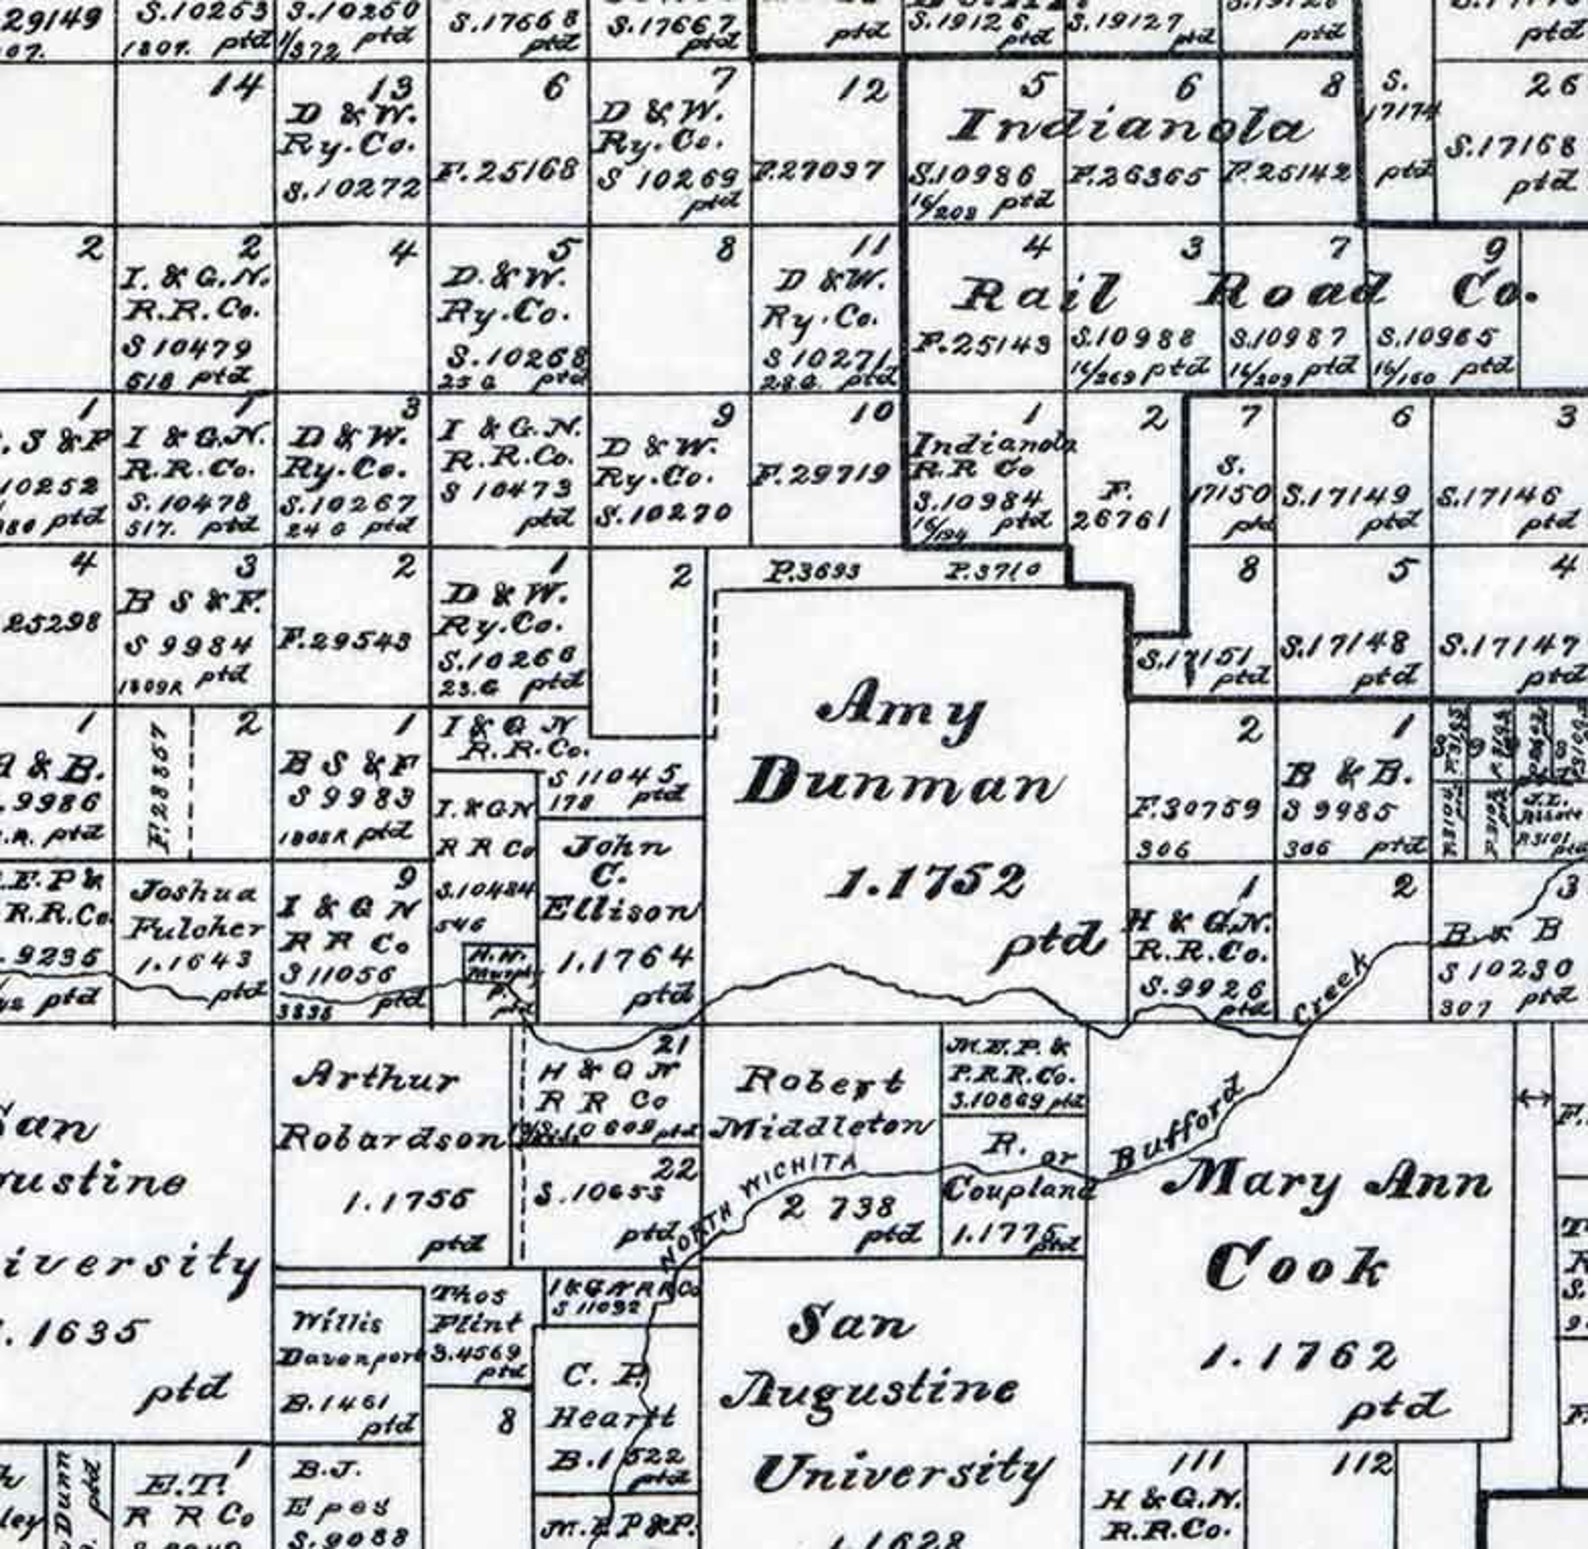 29149
S.10253
1807. ptd
S.10260
1/372 ptd
S.17668
ptd
S.17667
ptd
ptd
S.19126
ptd
S.19127
ptd
ptd
ptd
14
13
D & W.
Ry.Co.
S.10272
6
F.25168
7
D & W.
Ry.Co.
S 10269
ptd
12
F.27037
5
6
8
Indianola
S.10986
16/208 ptd
F.26365
F.25142
S.
17174
ptd
26
S.17168
ptd
2
2
I. & G.N.
R.R.Co.
S 10479
518 ptd
4
5
D. & W.
Ry.Co.
S.10268
25 G ptd
8
11
D & W.
Ry.Co.
S 10271
28 G. ptd
4
3
7
9
Rail Road Co.
F.25143
S.10988
16/269 ptd
S.10987
16/209 ptd
S.10965
16/160 ptd
1
. S & F
10252
ptd
1
I & G.N.
R.R.Co.
S.10478
517. ptd
3
D & W.
Ry.Co.
S.10267
24 G ptd
I & G.N.
R.R.Co.
S 10473
ptd
9
D & W.
Ry.Co.
S.10270
10
F.29719
1
Indianola
R.R Co
S.10984
16/194 ptd
2
F.
26761
7
S.
17150
ptd
6
S.17149
ptd
3
S.17146
ptd
4
25298
3
B S & F.
S 9984
1809R ptd
2
F.29543
1
D & W.
Ry.Co.
S.10266
23.G ptd
2
P.3693 P.3710
8
S.17151
ptd
5
S.17148
ptd
4
S.17147
ptd
1
& B.
.9986
ptd
F.28857
2
1
B S & F
S 9983
1808R ptd
I & G N
R.R.Co.
S 11045
178 ptd
Amy
Dunman
1.1752
ptd
2
F.30759
306
1
B & B.
S 9985
306 ptd
.E.P &
R.R.Co.
.9236
ptd
Joshua
Fulcher
1.1643
ptd
9
I & G N
R R Co
S 11056
3836 ptd
I. & G N
R R Co
S.10484
546
H.H.
Murphy
P.
ptd
John
C.
Ellison
1.1764
ptd
1
H & G.N.
R.R.Co.
S.9926
ptd
2
3
B & B
S 10230
307 ptd
Creek
San
ustine
iversity
. 1635
ptd
Arthur
Robardson
1.1755
ptd
21
H & G N
R R Co
S.10609 ptd
22
S.10653
ptd
Robert
Middleton
NORTH WICHITA
2 738
ptd
M.E.P. &
P.R.R.Co.
S.10869 ptd
R. or
Coupland
1.1775
ptd
Bufford
Mary Ann
Cook
1.1762
ptd
Willis
Davenport
B.1461
ptd
Thos
Flint
3.4569
ptd
I & G N R R Co
S 11032
C. P.
Heartt
B.1522
ptd
8
San
Augustine
University
1.1628
ley
Dunn
ptd
1
E.T.
R R Co
B.J.
Epes
S.9088
M.E P & P.
111
H & G.N.
R.R.Co.
112